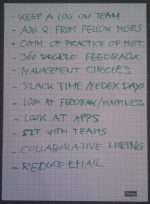 - KEEP A LOG ON TEAM
- ASK Q FROM FELLOW MGRS
- COMM. OF PRACTICE OF MGT
- 360 DEGREE FEEDBACK
- MANAGEMENT CIRCLES
- SLACK TIME/FEDEX DAYS
- LOOK AT FEEDBACK/HAPPINESS
- LOOK AT APPS
- SIT WITH TEAMS
- COLLABORATIVE HIRING
- REDUCE EMAIL